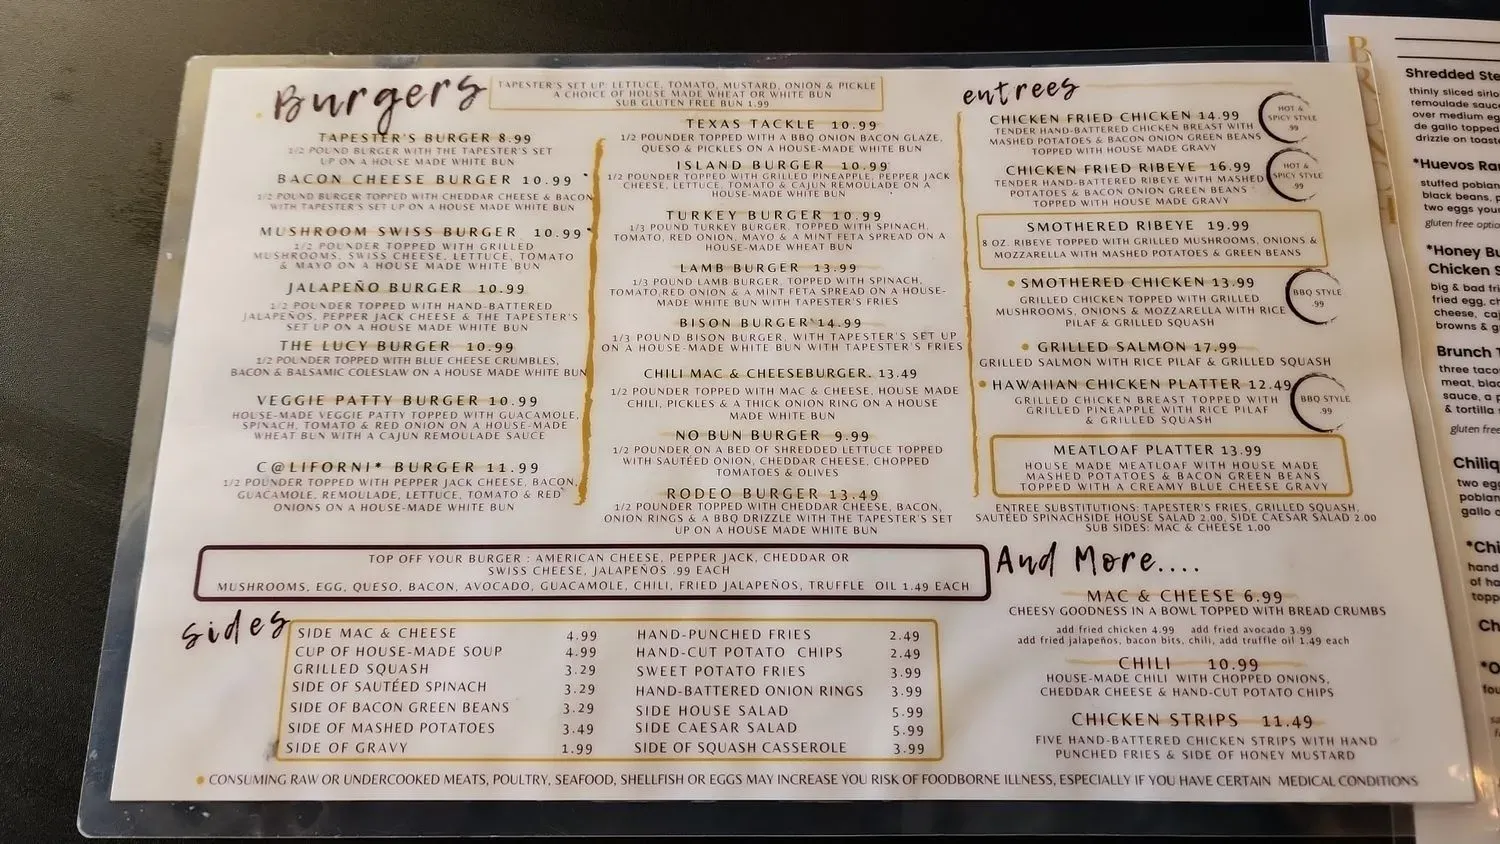 Burgers
TAPESTER'S SET UP: LETTUCE, TOMATO, MUSTARD, ONION & PICKLE
A CHOICE OF HOUSE MADE WHEAT OR WHITE BUN
SUB GLUTEN FREE BUN 1.99
TAPESTER'S BURGER 8.99
1/2 POUND BURGER WITH THE TAPESTER'S SET
UP ON A HOUSE MADE WHITE BUN
BACON CHEESE BURGER 10.99
1/2 POUND BURGER TOPPED WITH CHEDDAR CHEESE & BACON
WITH TAPESTER'S SET UP ON A HOUSE MADE WHITE BUN
MUSHROOM SWISS BURGER 10.99
1/2 POUNDER TOPPED WITH GRILLED
MUSHROOMS, SWISS CHEESE, LETTUCE, TOMATO
& MAYO ON A HOUSE MADE WHITE BUN
JALAPEÑO BURGER 10.99
1/2 POUNDER TOPPED WITH HAND-BATTERED
JALAPEÑOS, PEPPER JACK CHEESE & THE TAPESTER'S
SET UP ON A HOUSE MADE WHITE BUN
THE LUCY BURGER 10.99
1/2 POUNDER TOPPED WITH BLUE CHEESE CRUMBLES,
BACON & BALSAMIC COLESLAW ON A HOUSE MADE WHITE BUN
VEGGIE PATTY BURGER 10.99
HOUSE-MADE VEGGIE PATTY TOPPED WITH GUACAMOLE,
SPINACH, TOMATO & RED ONION ON A HOUSE-MADE
WHEAT BUN WITH A CAJUN REMOULADE SAUCE
C@LIFORNI* BURGER 11.99
1/2 POUNDER TOPPED WITH PEPPER JACK CHEESE, BACON,
GUACAMOLE, REMOULADE, LETTUCE, TOMATO & RED
ONIONS ON A HOUSE MADE WHITE BUN
TEXAS TACKLE 10.99
1/2 POUNDER TOPPED WITH A BBQ ONION BACON GLAZE,
QUESO & PICKLES ON A HOUSE-MADE WHITE BUN
ISLAND BURGER 10.99
1/2 POUNDER TOPPED WITH GRILLED PINEAPPLE, PEPPER JACK
CHEESE, LETTUCE, TOMATO & CAJUN REMOULADE ON A
HOUSE-MADE WHITE BUN
TURKEY BURGER 10.99
1/3 POUND TURKEY BURGER, TOPPED WITH SPINACH,
TOMATO, RED ONION, MAYO & A MINT FETA SPREAD ON A
HOUSE-MADE WHEAT BUN
LAMB BURGER 13.99
1/3 POUND LAMB BURGER, TOPPED WITH SPINACH,
TOMATO,RED ONION & A MINT FETA SPREAD ON A HOUSE-
MADE WHITE BUN WITH TAPESTER'S FRIES
BISON BURGER 14.99
1/3 POUND BISON BURGER, WITH TAPESTER'S SET UP
ON A HOUSE-MADE WHITE BUN WITH TAPESTER'S FRIES
CHILI MAC & CHEESEBURGER. 13.49
1/2 POUNDER TOPPED WITH MAC & CHEESE, HOUSE MADE
CHILI, PICKLES & A THICK ONION RING ON A HOUSE
MADE WHITE BUN
NO BUN BURGER 9.99
1/2 POUNDER ON A BED OF SHREDDED LETTUCE TOPPED
WITH SAUTÉED ONION, CHEDDAR CHEESE, CHOPPED
TOMATOES & OLIVES
RODEO BURGER 13.49
1/2 POUNDER TOPPED WITH CHEDDAR CHEESE, BACON,
ONION RINGS & A BBQ DRIZZLE WITH THE TAPESTER'S SET
UP ON A HOUSE MADE WHITE BUN
TOP OFF YOUR BURGER : AMERICAN CHEESE, PEPPER JACK, CHEDDAR OR
SWISS CHEESE, JALAPEÑOS .99 EACH
MUSHROOMS, EGG, QUESO, BACON, AVOCADO, GUACAMOLE, CHILI, FRIED JALAPEÑOS, TRUFFLE OIL 1.49 EACH
sides
SIDE MAC & CHEESE 4.99
CUP OF HOUSE-MADE SOUP 4.99
GRILLED SQUASH 3.29
SIDE OF SAUTÉED SPINACH 3.29
SIDE OF BACON GREEN BEANS 3.29
SIDE OF MASHED POTATOES 3.49
SIDE OF GRAVY 1.99
HAND-PUNCHED FRIES 2.49
HAND-CUT POTATO CHIPS 2.49
SWEET POTATO FRIES 3.99
HAND-BATTERED ONION RINGS 3.99
SIDE HOUSE SALAD 5.99
SIDE CAESAR SALAD 5.99
SIDE OF SQUASH CASSEROLE 3.99
entrees
CHICKEN FRIED CHICKEN 14.99
TENDER HAND-BATTERED CHICKEN BREAST WITH
MASHED POTATOES & BACON ONION GREEN BEANS
TOPPED WITH HOUSE MADE GRAVY
HOT &
SPICY STYLE
.99
CHICKEN FRIED RIBEYE 16.99
TENDER HAND-BATTERED RIBEYE WITH MASHED
POTATOES & BACON ONION GREEN BEANS
TOPPED WITH HOUSE MADE GRAVY
HOT &
SPICY STYLE
.99
SMOTHERED RIBEYE 19.99
8 OZ. RIBEYE TOPPED WITH GRILLED MUSHROOMS, ONIONS &
MOZZARELLA WITH MASHED POTATOES & GREEN BEANS
• SMOTHERED CHICKEN 13.99
GRILLED CHICKEN TOPPED WITH GRILLED
MUSHROOMS, ONIONS & MOZZARELLA WITH RICE
PILAF & GRILLED SQUASH
BBQ STYLE
.99
• GRILLED SALMON 17.99
GRILLED SALMON WITH RICE PILAF & GRILLED SQUASH
• HAWAIIAN CHICKEN PLATTER 12.49
GRILLED CHICKEN BREAST TOPPED WITH
GRILLED PINEAPPLE WITH RICE PILAF
& GRILLED SQUASH
BBQ STYLE
.99
MEATLOAF PLATTER 13.99
HOUSE MADE MEATLOAF WITH HOUSE MADE
MASHED POTATOES & BACON GREEN BEANS
TOPPED WITH A CREAMY BLUE CHEESE GRAVY
ENTREE SUBSTITUTIONS: TAPESTER'S FRIES, GRILLED SQUASH,
SAUTÉED SPINACHSIDE HOUSE SALAD 2.00, SIDE CAESAR SALAD 2.00
SUB SIDES: MAC & CHEESE 1.00
And More....
MAC & CHEESE 6.99
CHEESY GOODNESS IN A BOWL TOPPED WITH BREAD CRUMBS
add fried chicken 4.99 add fried avocado 3.99
add fried jalapeños, bacon bits, chili, add truffle oil 1.49 each
CHILI 10.99
HOUSE-MADE CHILI WITH CHOPPED ONIONS,
CHEDDAR CHEESE & HAND-CUT POTATO CHIPS
CHICKEN STRIPS 11.49
FIVE HAND-BATTERED CHICKEN STRIPS WITH HAND
PUNCHED FRIES & SIDE OF HONEY MUSTARD
• CONSUMING RAW OR UNDERCOOKED MEATS, POULTRY, SEAFOOD, SHELLFISH OR EGGS MAY INCREASE YOU RISK OF FOODBORNE ILLNESS, ESPECIALLY IF YOU HAVE CERTAIN MEDICAL CONDITIONS
Shredded
thinly sliced
remoulade
over medium
de gallo topped
drizzle on
*Huevos
stuffed
black beans,
two eggs
gluten free
*Honey
Chicken
big & bad
fried egg,
cheese,
browns &
Brunch
three
meat,
sauce, a
& tortilla
gluten free
two
gallo
hand
of